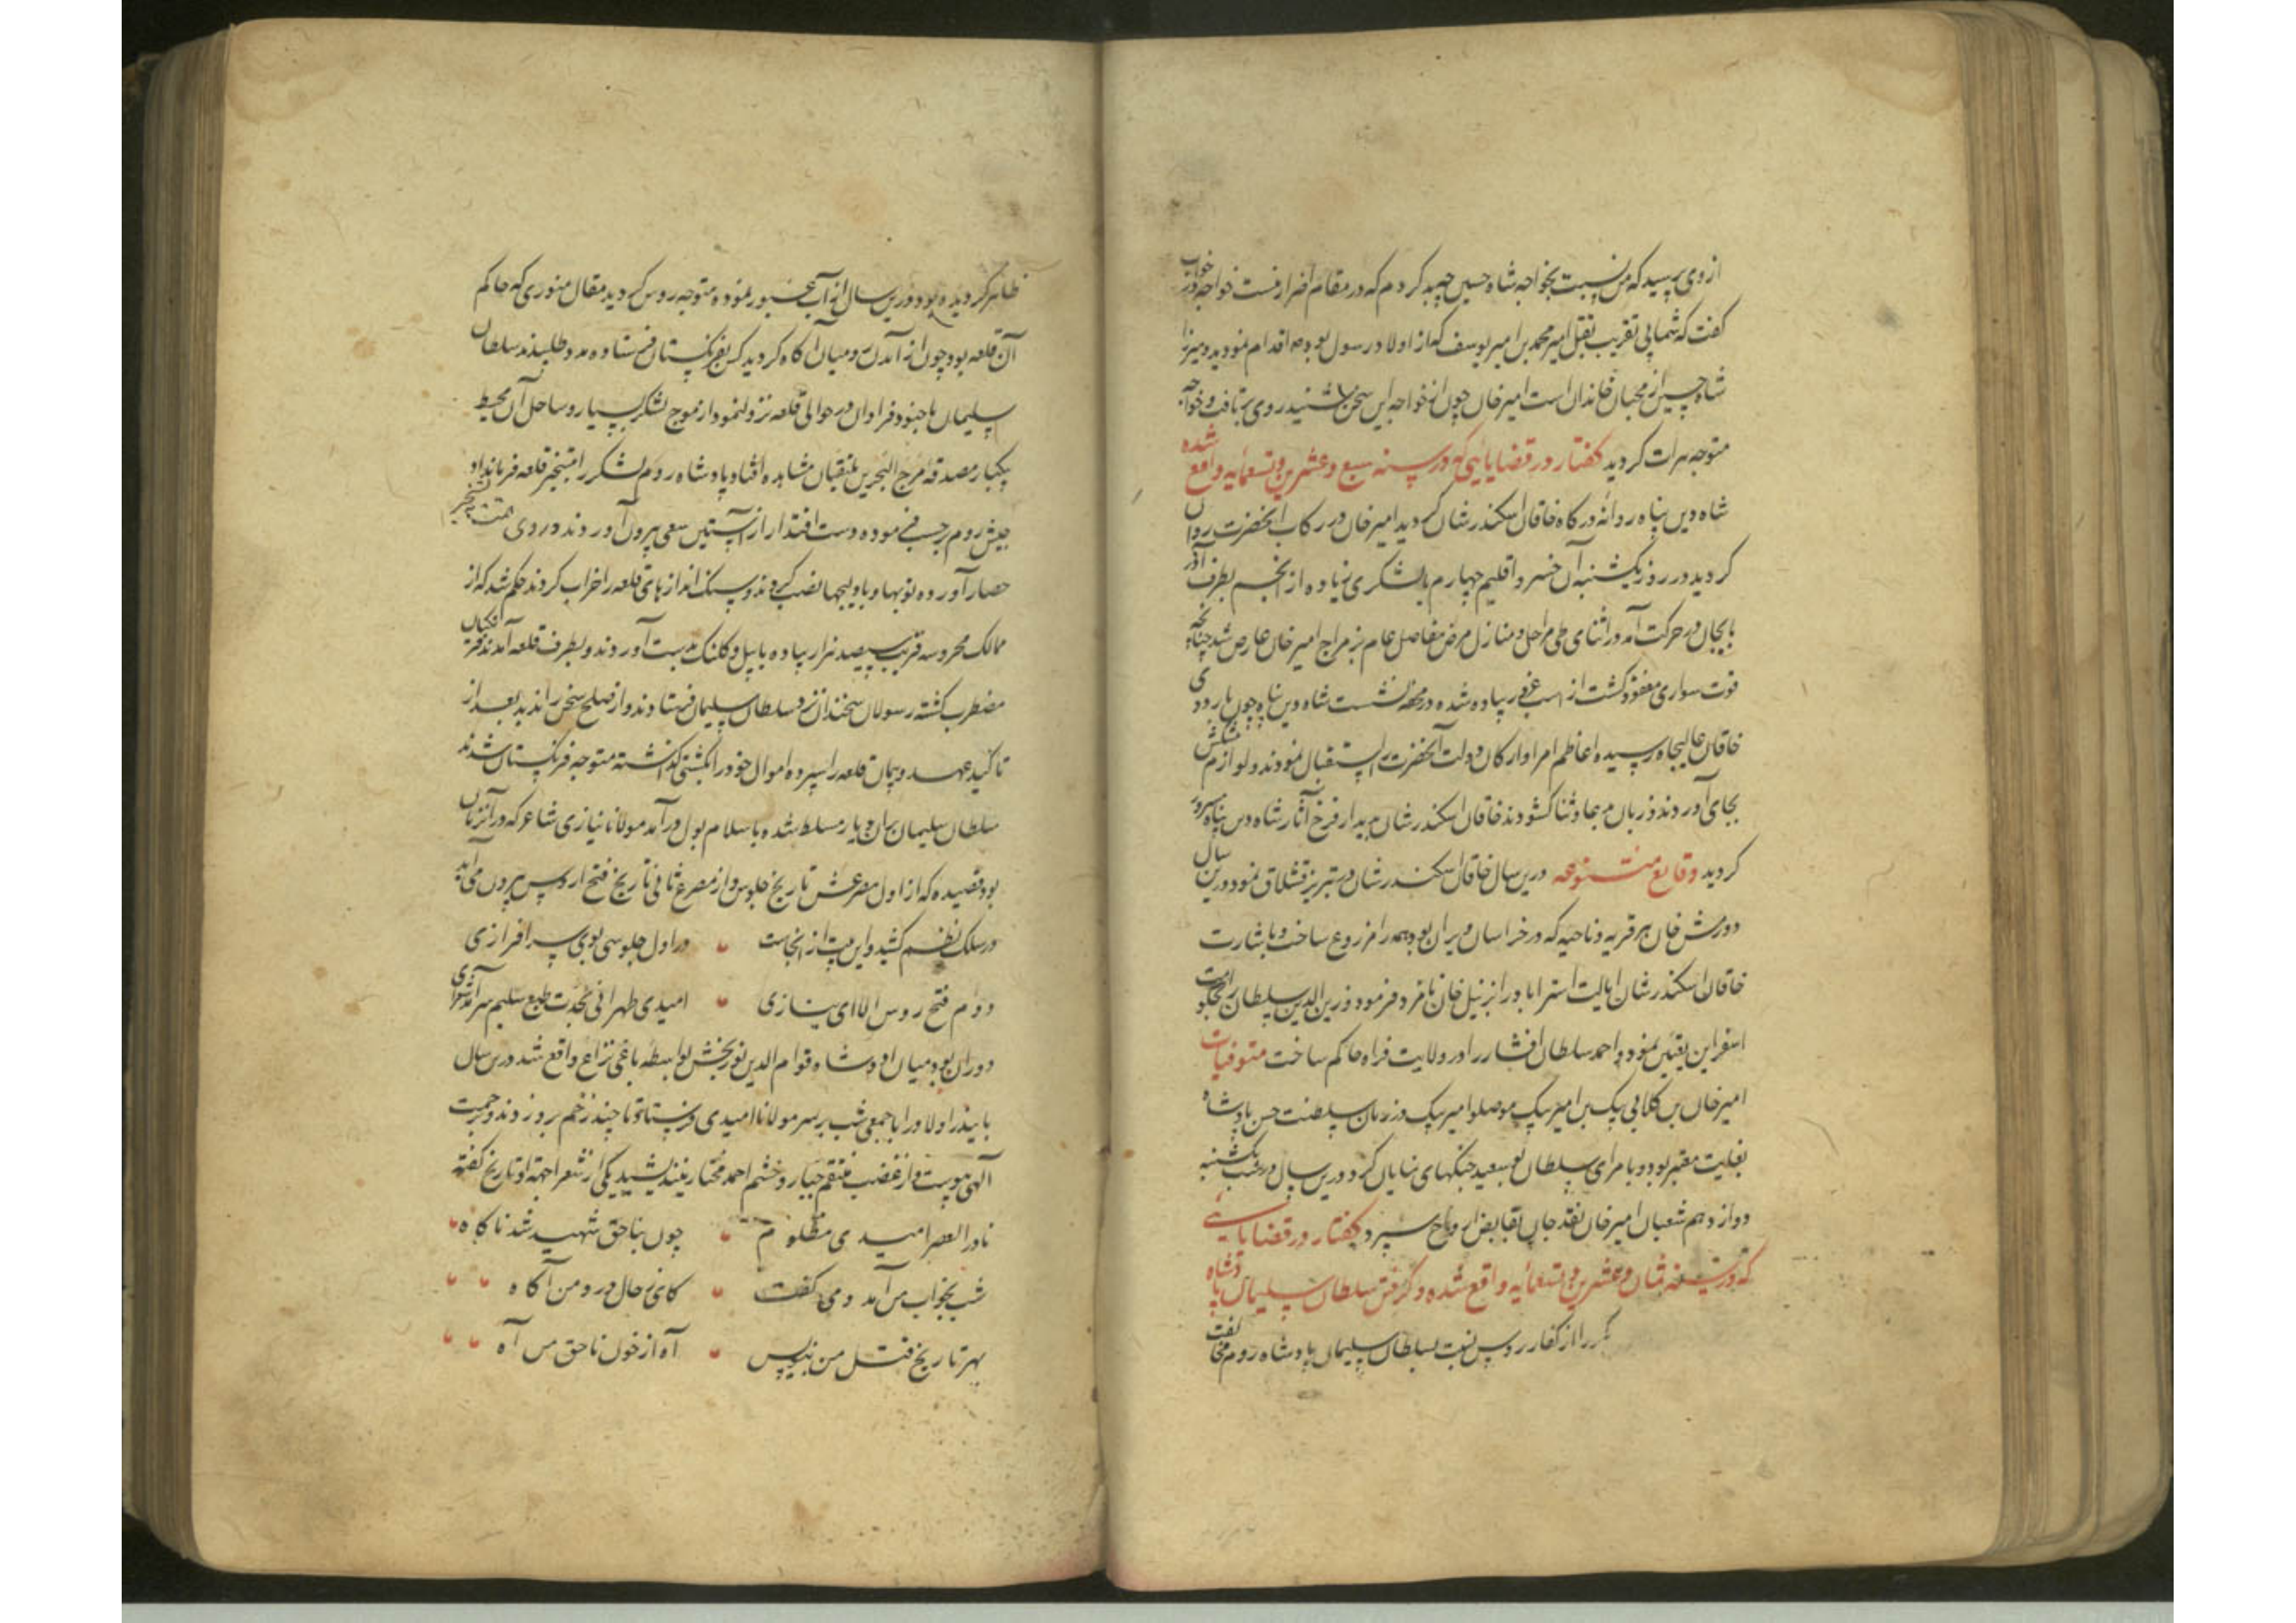 از وی پرسید که من نسبت بخواجه شاه حسین چه بد کردم که در مقام اضرار منست خواجه در جواب
گفت که شما بی تقریب بقتل امیر محمد بن امیر یوسف که از اولاد رسول بوده اقدام نمودید و میرزا
شاه حسین از محبان خاندان است امیر خان چون از خواجه این سخن شنید روی بتافت و خواجه
متوجه هرات کردید کفتار در قضایائی که در سنه سبع و عشرین و تسعمائه واقع شده
شاه دین پناه روانه درکاه خاقان اسکندر شان کردید امیر خان در رکاب آنحضرت روان
کردید در روز یکشنبه آن خسرو اقلیم چهارم با لشکری زیاده از انجم بطرف آذر
بایجان در حرکت آمد در اثنای طی مراحل و منازل مرض مفاصل عام بر مزاج امیر خان عارض شد چنانچه
قوت سواری مفقود کشت از اسب غرور پیاده شده در محفه نشست شاه دین پناه چون باردوی
خاقان عالیجاه رسیده اعاظم امرا و ارکان دولت آنحضرت را استقبال نمودند و لوازم پیشکش
بجای آوردند و زبان بدعا و ثنا کشودند خاقان اسکندر شان بدیدار فرخ آثار شاه دین پناه مسرور
کردید وقایع متنوعه درین سال خاقان اسکندر شان در تبریز قشلاق نمود و درین سال
دورمش خان هر قریه و ناحیه که در خراسان ویران بود همه را مزروع ساخت و باشارت
خاقان اسکندر شان ایالت استراباد را بزینل خان نامزد فرمود و زین الدین سلطان را بحکومت
اسفراین تعیین نمود و احمد سلطان افشار را در ولایت فراه حاکم ساخت متوفیات
امیر خان بن کلابی بیک بن امیر بیک موصلو امیر بیک در زمان سلطنت حسن پادشاه
بغایت معتبر بود و با امرای سلطان ابو سعید جنکهای نمایان کرد و درین سال در شب یکشنبه
دوازدهم شعبان امیر خان نقد جان بقابض ارواح سپرد کفتار در قضایائی
که در سنه ثمان و عشرین و تسعمائه واقع شده و کرفتن سلطان سلیمان پادشاه
را از کفار روس نوبت بسلطان سلیمان پادشاه روم مخالفت
ظاهر کردیده بود و درین سال از آب عبور نموده متوجه روس کردید مقال منوری که حاکم
آن قلعه بود چون از آمدن رومیان آکاه کردید کس بفرنکستان فرستاده مدد طلبید سلطان
سلیمان با جنود فراوان در حوالی قلعه نزول نمود از موج لشکر بسیار و ساحل آن محیط
یکبار مصدقه مرج البحرین یلتقیان مشاهده افتاد پادشاه روم لشکر را بتسخیر قلعه فرمان داد
جیش روم برحسب فرموده دست اقتدار از آستین سعی بیرون آوردند و روی همت بتسخیر
حصار آورده توپها و بادلیجها نصب کردند و سنک اندازهای قلعه را خراب کردند حکم شد که از
ممالک محروسه قریب سیصد هزار پیاده با بیل و کلنک بدست آوردند و بطرف قلعه آمدند فرنکیان
مضطرب کشته رسولان سخندان نزد سلطان سلیمان فرستادند و از صلح سخن راندند بعد از
تاکید عهد و پیمان قلعه را سپرده اموال خود را بکشتی کذاشته متوجه فرنکستان شدند
سلطان سلیمان بران دیار مسلط شده باسلامبول درآمد مولانا نیازی شاعر که در آنزمان
بود قصیده که از اول مصرعش تاریخ جلوس و از مصرع ثانی تاریخ فتح اروس بیرون می آید
در سلک نظم کشید و این بیت از انجاست در اول جلوسی بوی سرافرازی
دوم فتح روس الا ای نیازی امیدی طهرانی بحدت طبع سلیم سرآمد شعرای
دوران بود میان او و شاه قوام الدین نوربخش بواسطه باغی نزاع واقع شد درین سال
اولاد را با جمعی شب بر سر مولانا امیدی فرستاد تا چند زخم برو زدند و برحمت
آلهی پیوست و از غضب منتقم جبار و خشم احمد مختار نیندیشید یکی از شعرا جهة او تاریخ کفته
نادر العصر امیدی مظلوم چون بناحق شهید شد ناکاه
شب بخواب من آمد و می کفت کای ز حال درون من آکاه
بهر تاریخ قتل من بنویس آه از خون ناحق من آه